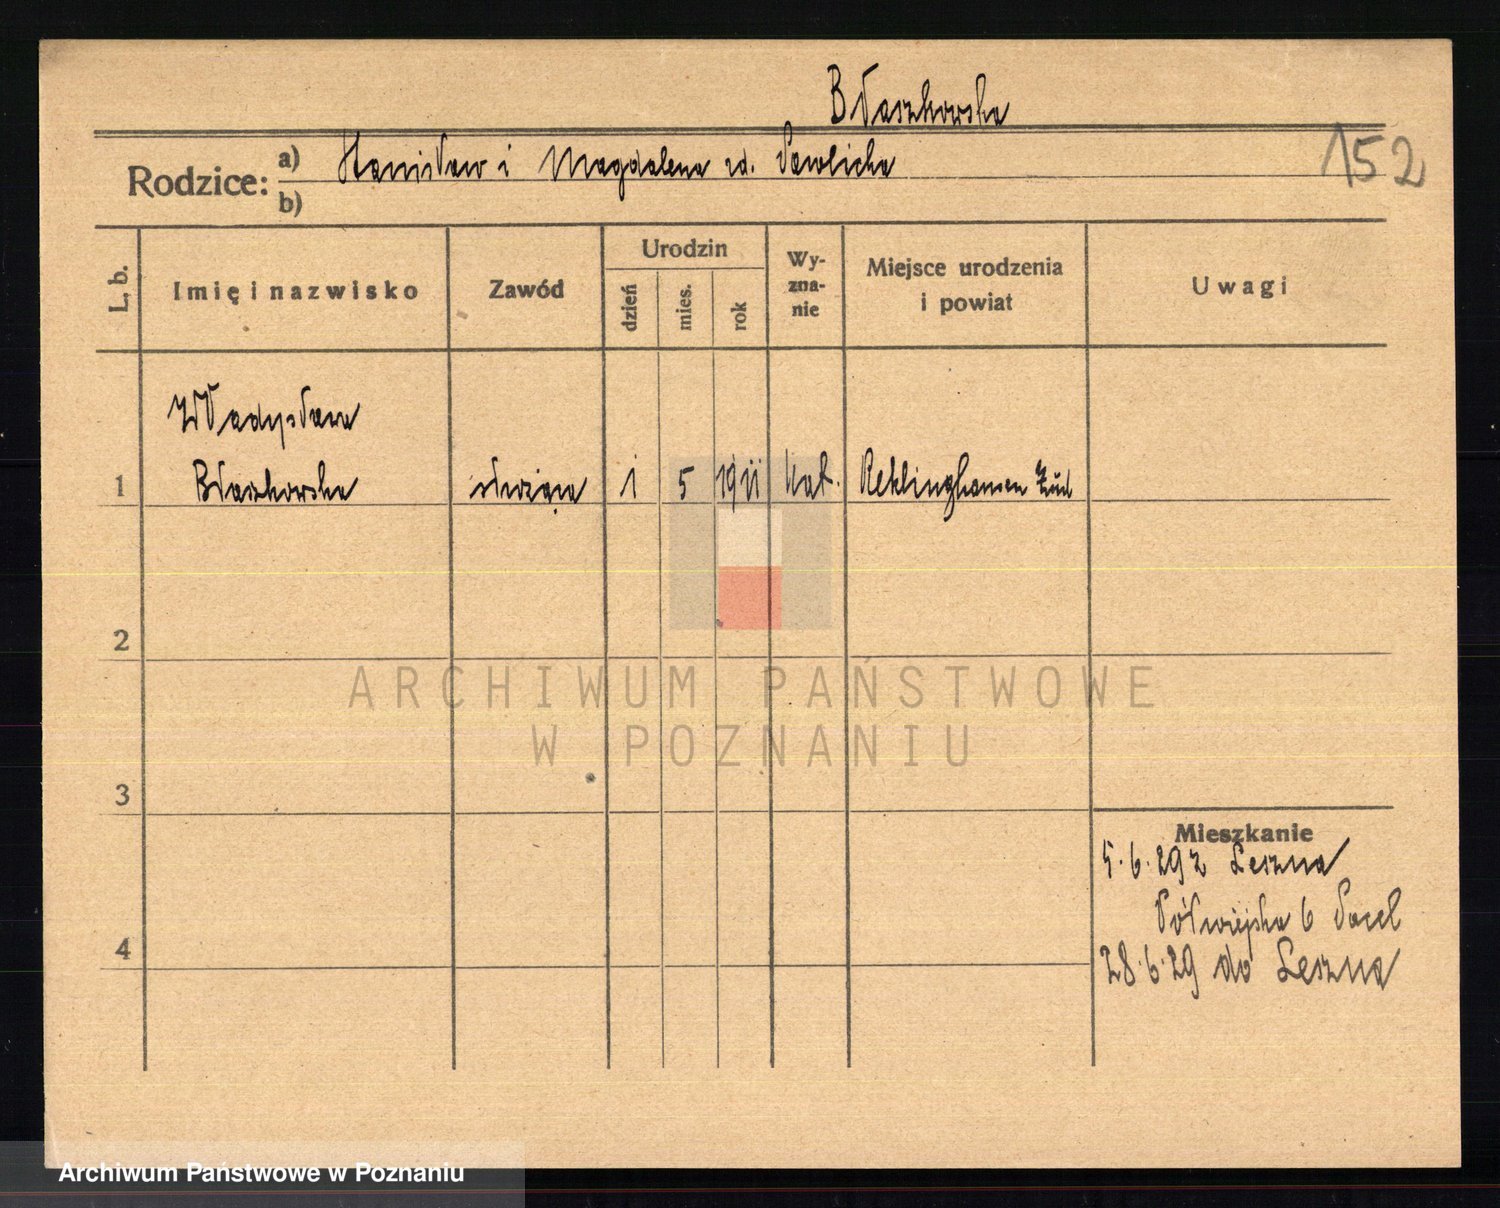 Błaszkowska
152
Rodzice:
a) Stanisław i Magdalena zd. Pawlicka
b)
L. b.
Imię i nazwisko
Zawód
Urodzin
dzień
mies.
rok
Wy-
zna-
nie
Miejsce urodzenia
i powiat
Uwagi
Władysława
1 Błaszkowska służąca 1 5 1911 kat. Reklinghausen
2
3
4
Mieszkanie
5.6.29 z Leszna
Półwiejska 6
28.6.29 do Leszna
ARCHIWUM PAŃSTWOWE
W POZNANIU
Archiwum Państwowe w Poznaniu